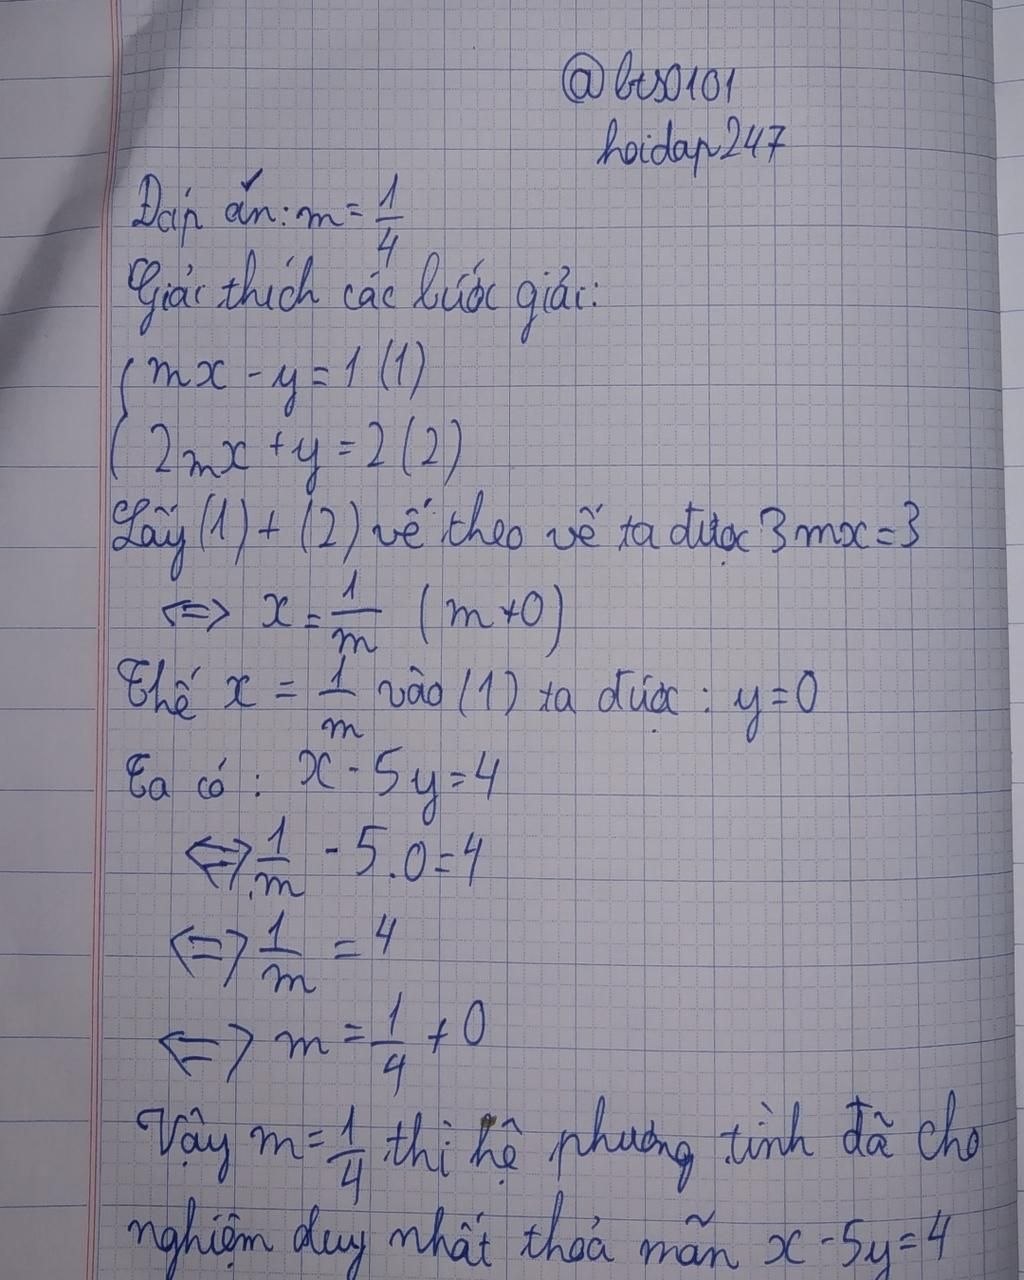 @bts0101
hoidap247
Đáp án: m = 1/4
Giải thích các bước giải:
{ mx - y = 1 (1)
{ 2mx + y = 2 (2)
Lấy (1) + (2) vế theo vế ta được 3mx = 3
<=> x = 1/m (m ≠ 0)
Thế x = 1/m vào (1) ta được : y = 0
Ta có : x - 5y = 4
<=> 1/m - 5.0 = 4
<=> 1/m = 4
<=> m = 1/4 ≠ 0
Vậy m = 1/4 thì hệ phương tình đã cho
nghiệm duy nhất thoả mãn x - 5y = 4